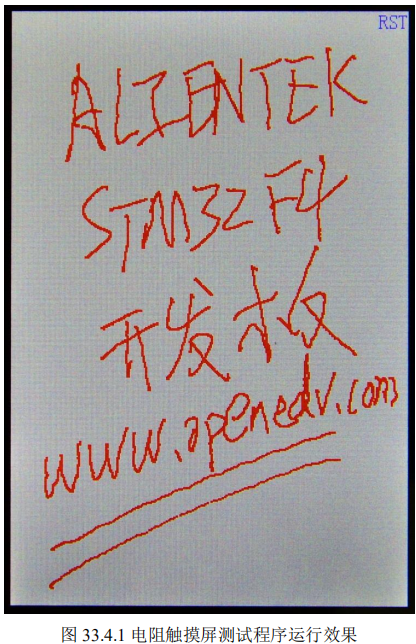 RST
ALIENTEK
STM32F4
开发板
www.openedv.com
图 33.4.1 电阻触摸屏测试程序运行效果